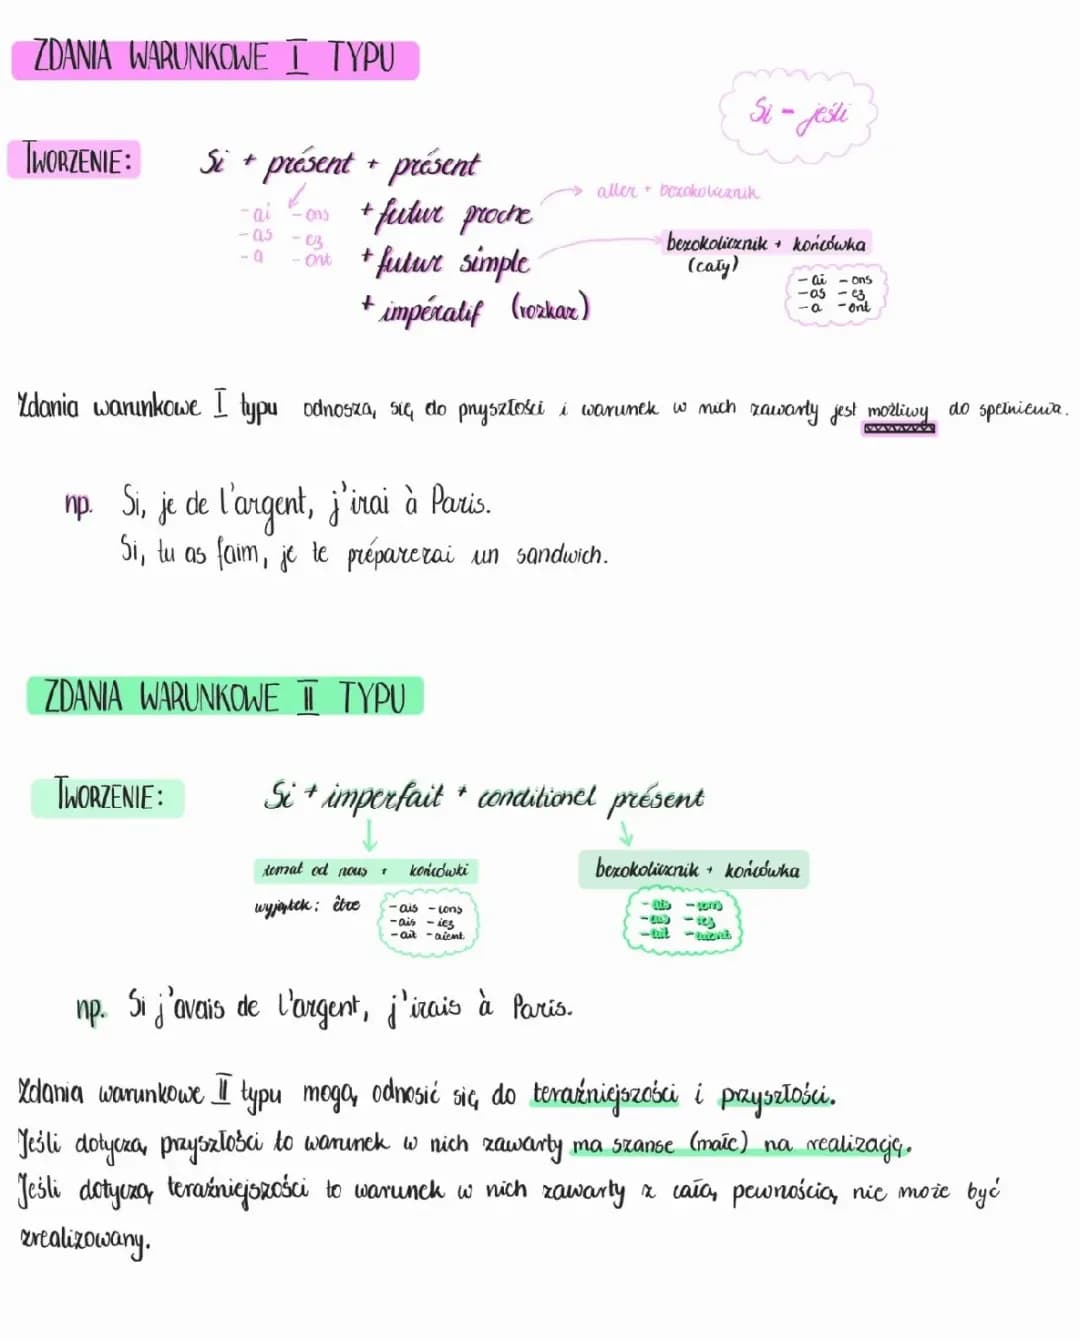 ZDANIA WARUNKOWE I TYPU
Si - jeśli
TWORZENIE: Si + présent + présent
+ futur proche → aller + bezokolicznik
-ai -ons
-as -ez
-a -ont
+ futur simple
bezokolicznik + końcówka
(cały)
-ai -ons
-as -ez
-a -ont
+ impératif (rozkaz)
Zdania warunkowe I typu odnoszą się do przyszłości i warunek w nich zawarty jest możliwy do spełnienia.
np. Si, je de l'argent, j'irai à Paris.
Si, tu as faim, je te préparerai un sandwich.
ZDANIA WARUNKOWE II TYPU
TWORZENIE: Si + imperfait + conditionel présent
temat od nous + końcówki
bezokolicznik + końcówka
wyjątek: être
-ais -ions
-ais -iez
-ait -aient
-ais -ions
-ais -iez
-ait -aient
np. Si j'avais de l'argent, j'irais à Paris.
Zdania warunkowe II typu mogą odnosić się do teraźniejszości i przyszłości.
Jeśli dotyczą przyszłości to warunek w nich zawarty ma szanse (małe) na realizację.
Jeśli dotyczą teraźniejszości to warunek w nich zawarty z całą pewnością nie może być
zrealizowany.